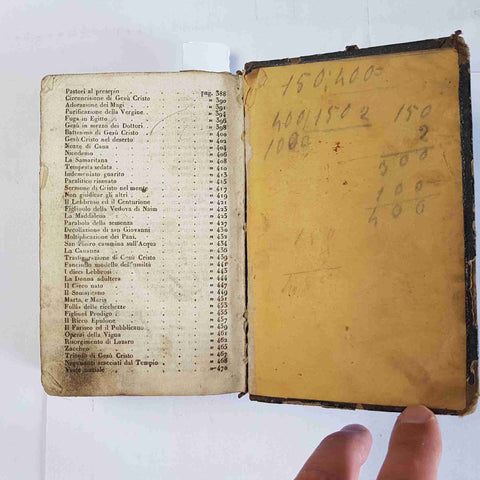 Pastori al presepio pag. 388
Circoncisione di Gesù Cristo » 390
Adorazione dei Magi » 391
Purificazione della Vergine » 394
Fuga in Egitto » 396
Gesù in mezzo dei Dottori » 398
Battesimo di Gesù Cristo » 400
Gesù Cristo nel deserto » 402
Nozze di Cana » 404
Nicodemo » 406
La Samaritana » 408
Tempesta sedata » 410
Indemoniato guarito » 413
Paralitico risanato » 415
Sermone di Cristo nel monte » 417
Non giudicar gli altri » 419
Il Lebbroso ed il Centurione » 421
Figliuolo della Vedova di Naim » 423
La Maddalena » 425
Parabola della semenza » 427
Decollazione di san Giovanni » 429
Moltiplicazione dei Pani »
San Pietro cammina sull'Acqua » 434
La Cananea » 436
Trasfigurazione di Gesù Cristo »
Fanciullo modello dell'umiltà » 441
I dieci Lebbrosi » 443
La Donna adultera » 444
Il Cieco nato » 447
Il Samaritano » 449
Marta, e Maria » 451
Follia delle ricchezze » 453
Figliuol Prodigo » 455
Il Ricco Epulone » 457
Il Fariseo ed il Pubblicano » 459
Operai della Vigna » 461
Risorgimento di Lazaro » 463
Zaccheo » 465
Trionfo di Gesù Cristo » 467
Negozianti scacciati dal Tempio » 468
Veste nuziale » 470
150,400=
400/150 2
1000
150
2
300
100
400